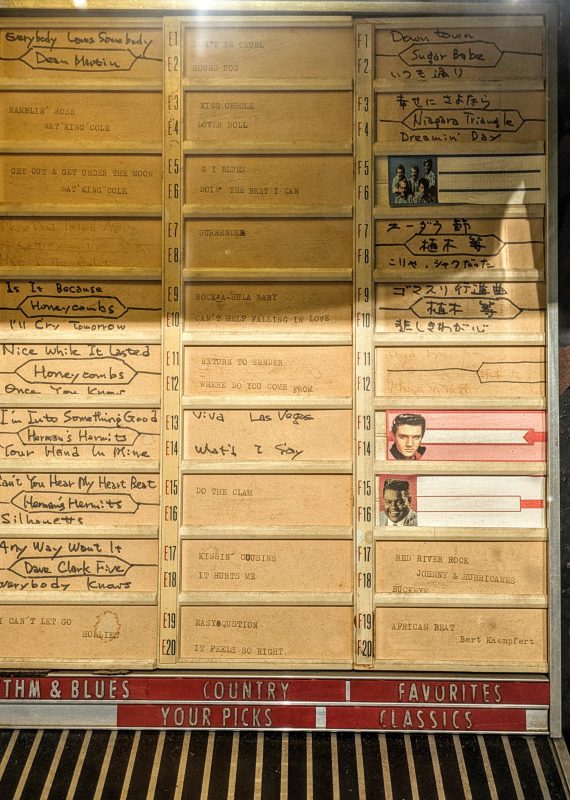 Everybody Loves Somebody
Dean Martin
RAMBLIN' ROSE
NAT'KING'COLE
GET OUT & GET UNDER THE MOON
NAT'KING'COLE
Is It Because
Honeycombs
I'll Cry Tomorrow
Nice While It Lasted
Honeycombs
Once You Know
I'm Into Something Good
Herman's Hermits
Your Hand In Mine
Can't You Hear My Heart Beat
Herman's Hermits
Silhouetts
Any Way Want It
Dave Clark Five
Everybody Knows
I CAN'T LET GO
HOLLIES
E1
E2
E3
E4
E5
E6
E7
E8
E9
E10
E11
E12
E13
E14
E15
E16
E17
E18
E19
E20
DON'T BE CRUEL
HOUND DOG
KING CREOLE
LOVER DOLL
G I BLUES
DOIN' THE BEST I CAN
SURRENDER
ROCK-A-HULA BABY
CAN'T HELP FALLING IN LOVE
RETURN TO SENDER
WHERE DO YOU COME FROM
Viva Las Vegas
What'd I Say
DO THE CLAM
KISSIN' COUSINS
IT HURTS ME
EASY QUSTION
IT FEELS SO RIGHT
F1
F2
F3
F4
F5
F6
F7
F8
F9
F10
F11
F12
F13
F14
F15
F16
F17
F18
F19
F20
Down town
Sugar Babe
いつも通り
幸せにさよなら
Niagara Triangle
Dreamin' Day
スーダラ節
植木等
こりゃ,シャクだった
ゴマスリ行進曲
植木等
悲しきわが心
RED RIVER ROCK
JOHNNY & HURRICANES
BUCKEYE
AFRICAN BEAT
Bert Kaempfert
THM & BLUES
COUNTRY
FAVORITES
YOUR PICKS
CLASSICS